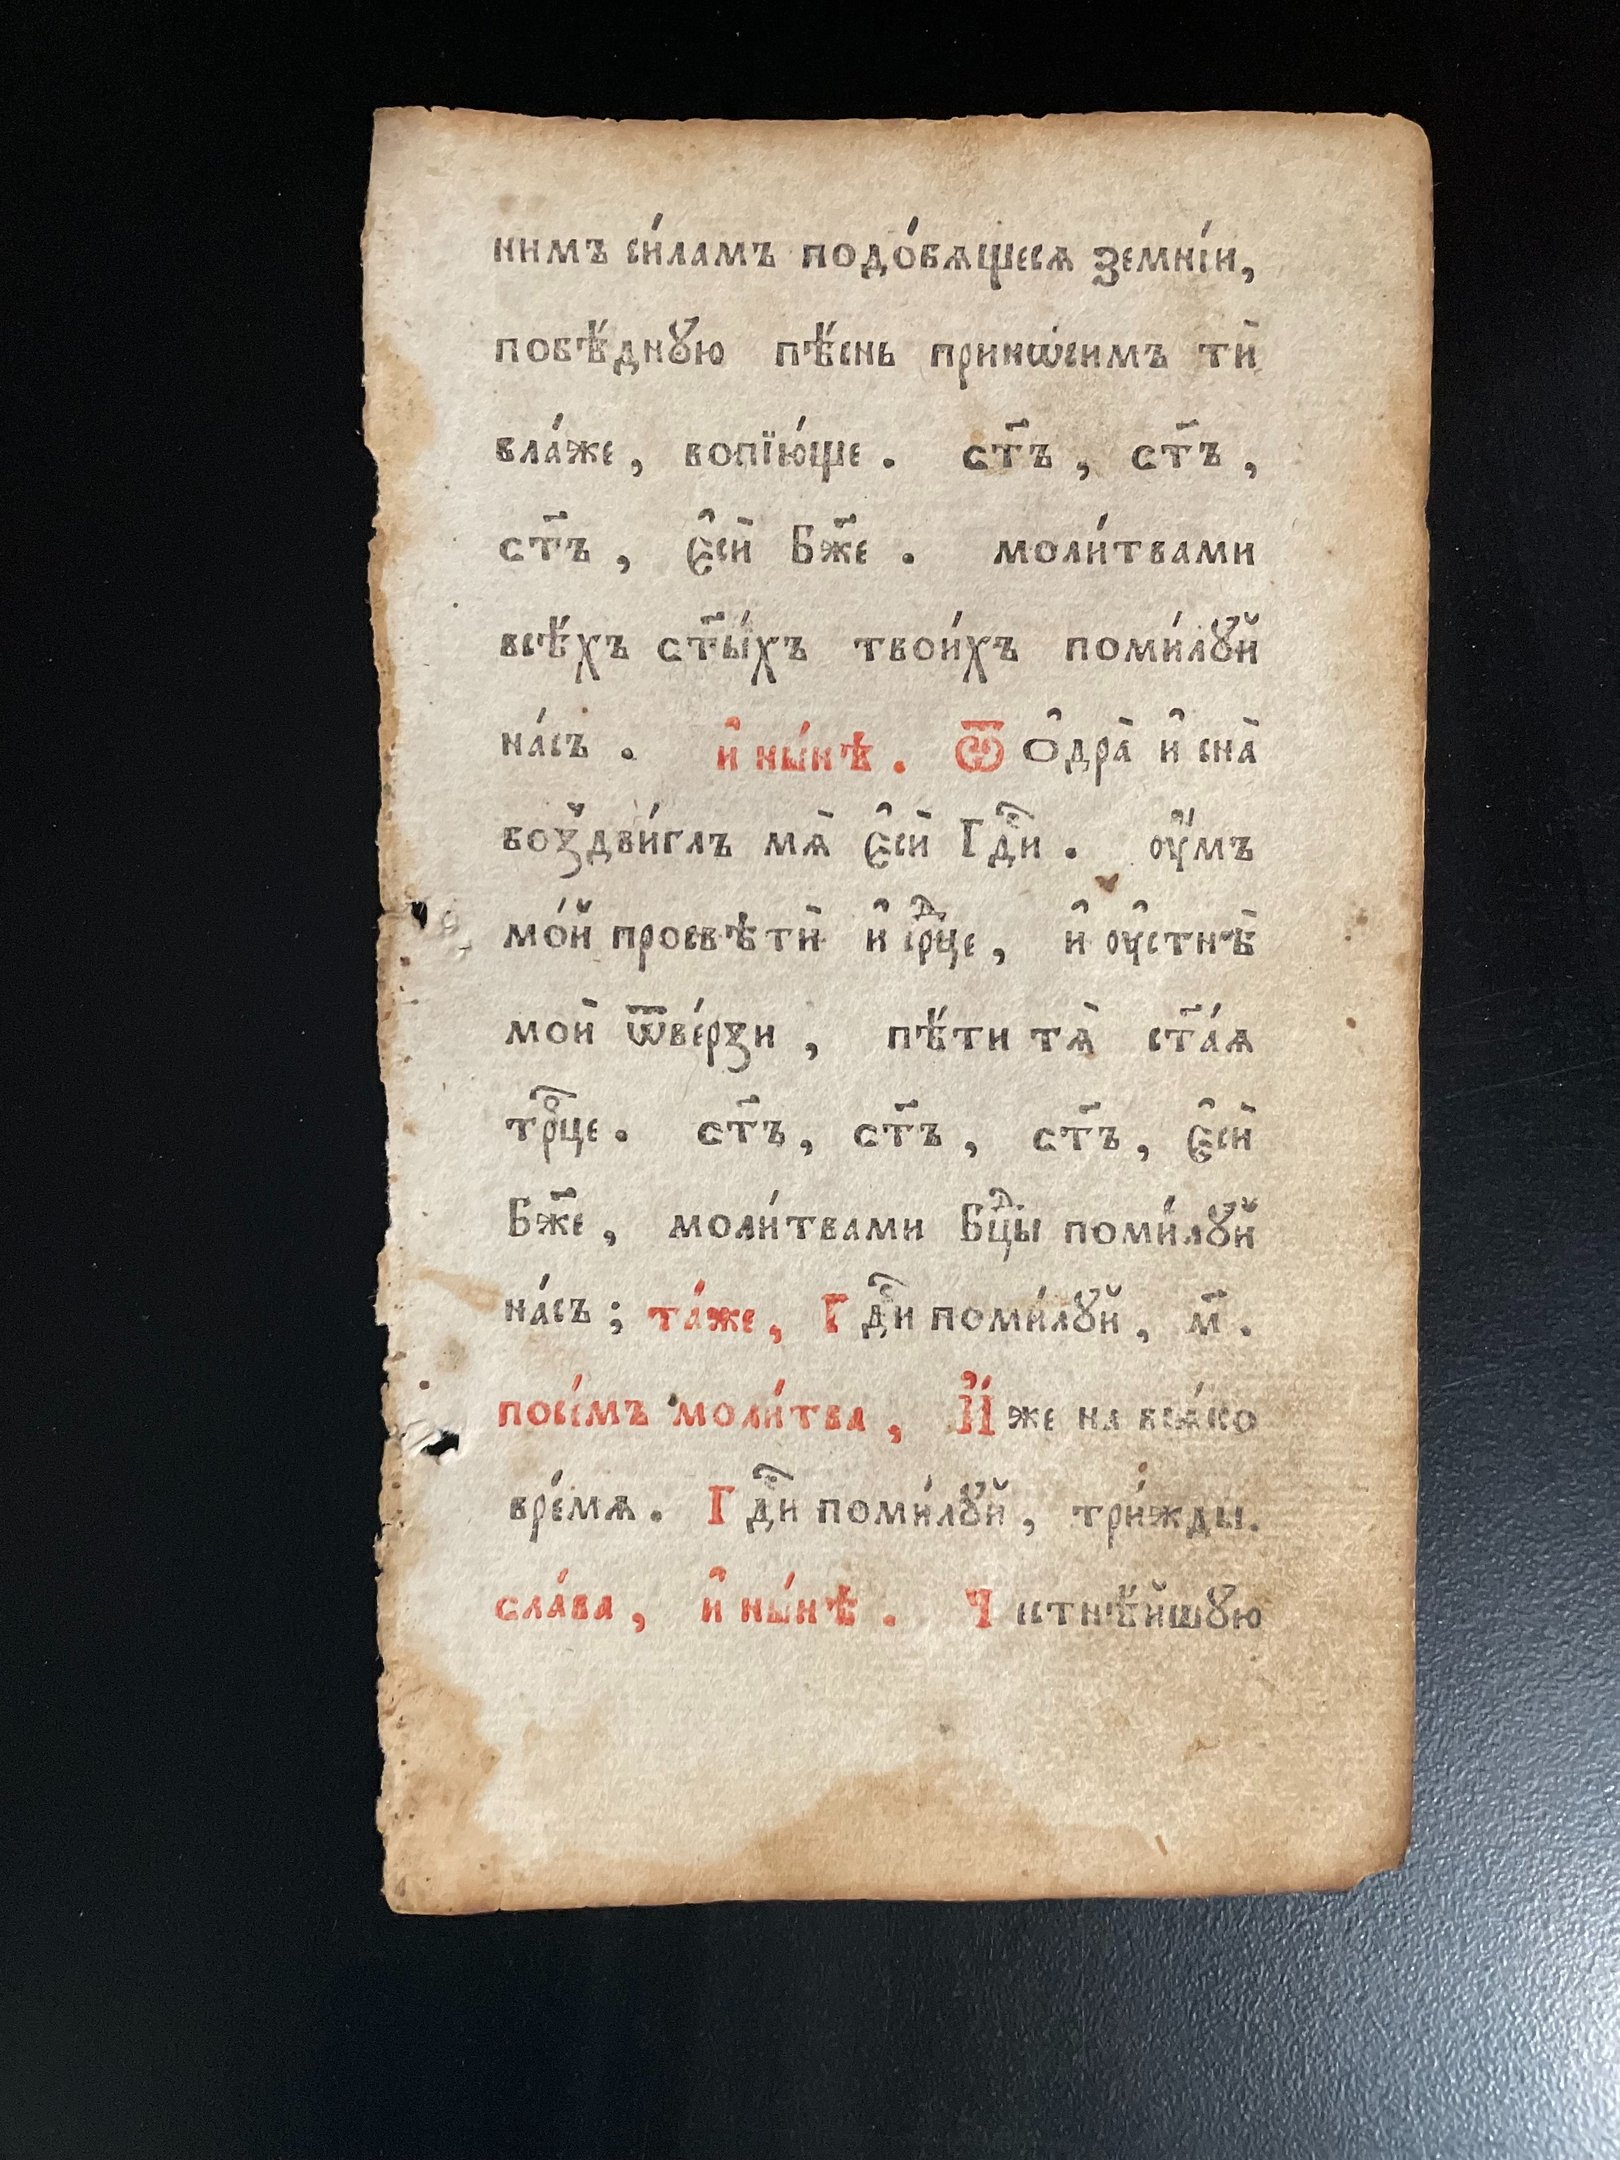 нимъ си́ламъ подо́бѧщесѧ земні́и,
побѣ́днꙋю пѣ́снь принѡ́симъ тѝ
бла́же, вопїю́ще. ст҃ъ, ст҃ъ,
ст҃ъ, є҆сѝ Бж҃е. моли́твами
всѣ́хъ ст҃ы́хъ твои́хъ поми́лꙋй
на́съ. и҆ ны́нѣ. Ѿ ѻ҆дра̀ и҆ сна̀
воздви́глъ мѧ̀ є҆сѝ Гдⷭ҇и. оу҆́мъ
мо́й просвѣтѝ и҆ срⷣце, и҆ оу҆стнѣ̀
моѝ ѿве́рзи, пѣ́ти тѧ̀ ст҃а́ѧ
трⷪ҇це. ст҃ъ, ст҃ъ, ст҃ъ, є҆сѝ
Бж҃е, моли́твами Бцⷣы поми́лꙋй
на́съ; та́же, Гдⷭ҇и поми́лꙋй, м҃.
посі́мъ моли́тва, И҆́же на всѧ́ко
вре́мѧ. Гдⷭ҇и поми́лꙋй, три́жды.
сла́ва, и҆ ны́нѣ. Чстнѣ́йшꙋю